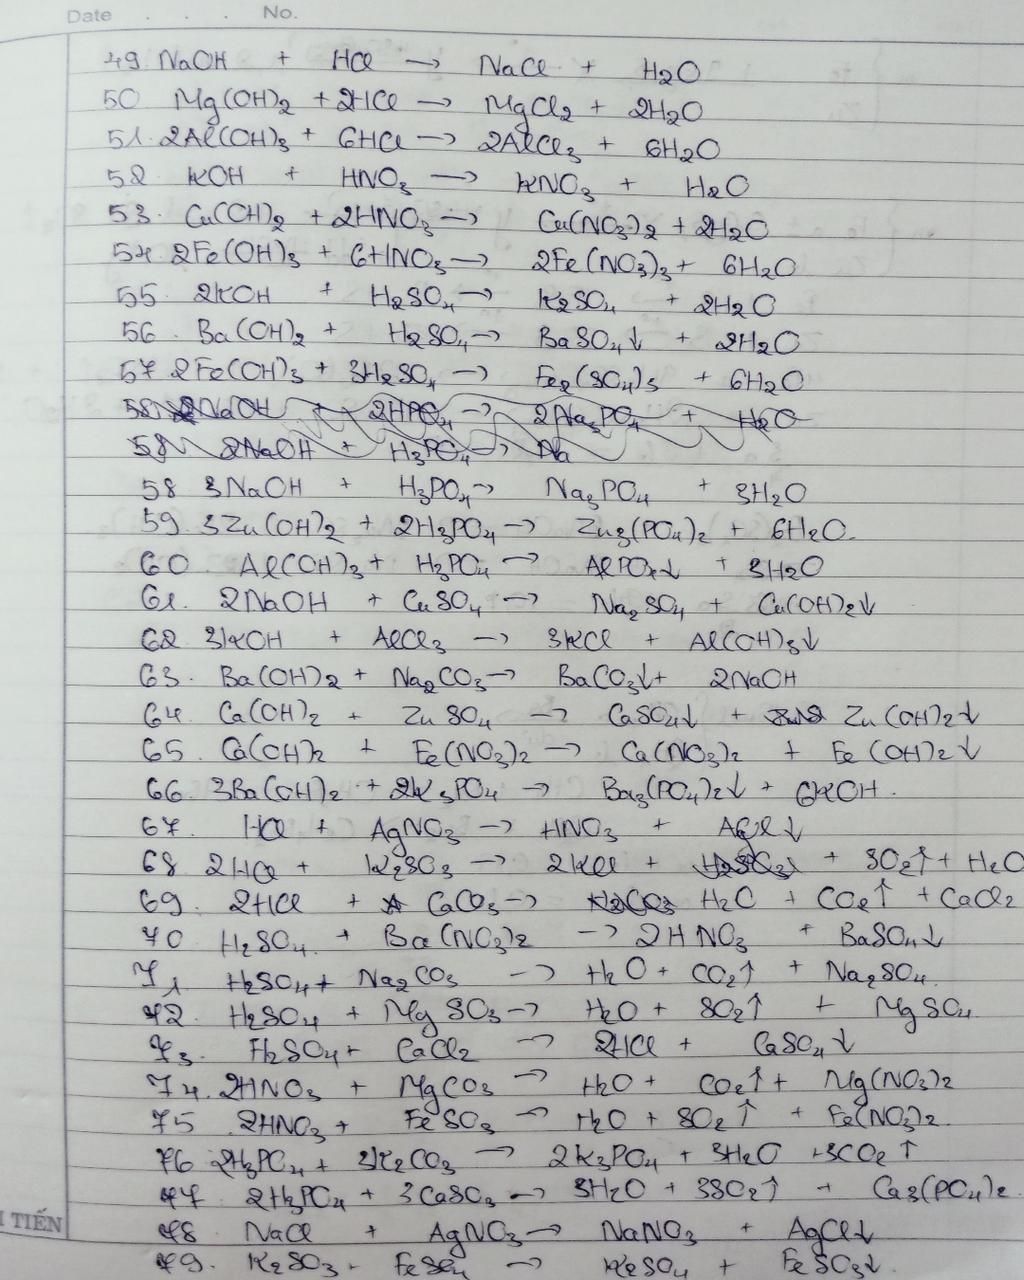 Date . . . No.
49. NaOH + HCl → NaCl + H2O
50 Mg(OH)2 + 2HCl → MgCl2 + 2H2O
51. 2Al(OH)3 + 6HCl → 2AlCl3 + 6H2O
52 KOH + HNO3 → KNO3 + H2O
53. Cu(OH)2 + 2HNO3 → Cu(NO3)2 + 2H2O
54 2Fe(OH)3 + 6HNO3 → 2Fe(NO3)3 + 6H2O
55 2KOH + H2SO4 → K2SO4 + 2H2O
56. Ba(OH)2 + H2SO4 → BaSO4↓ + 2H2O
57 2Fe(OH)3 + 3H2SO4 → Fe2(SO4)3 + 6H2O
58 NaOH + 2HPO4 → 2Na3PO4 + H2O
58 2NaOH + H3PO4 → Na
58 3NaOH + H3PO4 → Na3PO4 + 3H2O
59. 3Zn(OH)2 + 2H3PO4 → Zn3(PO4)2 + 6H2O.
60. Al(OH)3 + H3PO4 → AlPO4↓ + 3H2O
61. 2NaOH + CuSO4 → Na2SO4 + Cu(OH)2↓
62 3KOH + AlCl3 → 3KCl + Al(OH)3↓
63. Ba(OH)2 + Na2CO3 → BaCO3↓ + 2NaOH
64 Ca(OH)2 + ZnSO4 → CaSO4↓ + Zn(OH)2↓
65. Ca(OH)2 + Fe(NO3)2 → Ca(NO3)2 + Fe(OH)2↓
66. 3Ba(OH)2 + 2K3PO4 → Ba3(PO4)2↓ + 6KOH.
67. HCl + AgNO3 → HNO3 + AgCl↓
68 2HCl + K2SO3 → 2KCl + H2SO3 + SO2↑ + H2O
69. 2HCl + CaCO3 → H2CO3 H2O + CO2↑ + CaCl2
70 H2SO4 + Ba(NO3)2 → 2HNO3 + BaSO4↓
71 H2SO4 + Na2CO3 → H2O + CO2↑ + Na2SO4.
72. H2SO4 + MgSO3 → H2O + SO2↑ + MgSO4
73. H2SO4 + CaCl2 → 2HCl + CaSO4↓
74. 2HNO3 + MgCO3 → H2O + CO2↑ + Mg(NO3)2
75 2HNO3 + FeSO3 → H2O + SO2↑ + Fe(NO3)2.
76 2H3PO4 + 3K2CO3 → 2K3PO4 + 3H2O + 3CO2↑
77. 2H3PO4 + 3CaSO3 → 3H2O + 3SO2↑ + Ca3(PO4)2.
TIẾN
78 NaCl + AgNO3 → NaNO3 + AgCl↓
79. K2SO3 + FeSO4 → K2SO4 + FeSO3↓